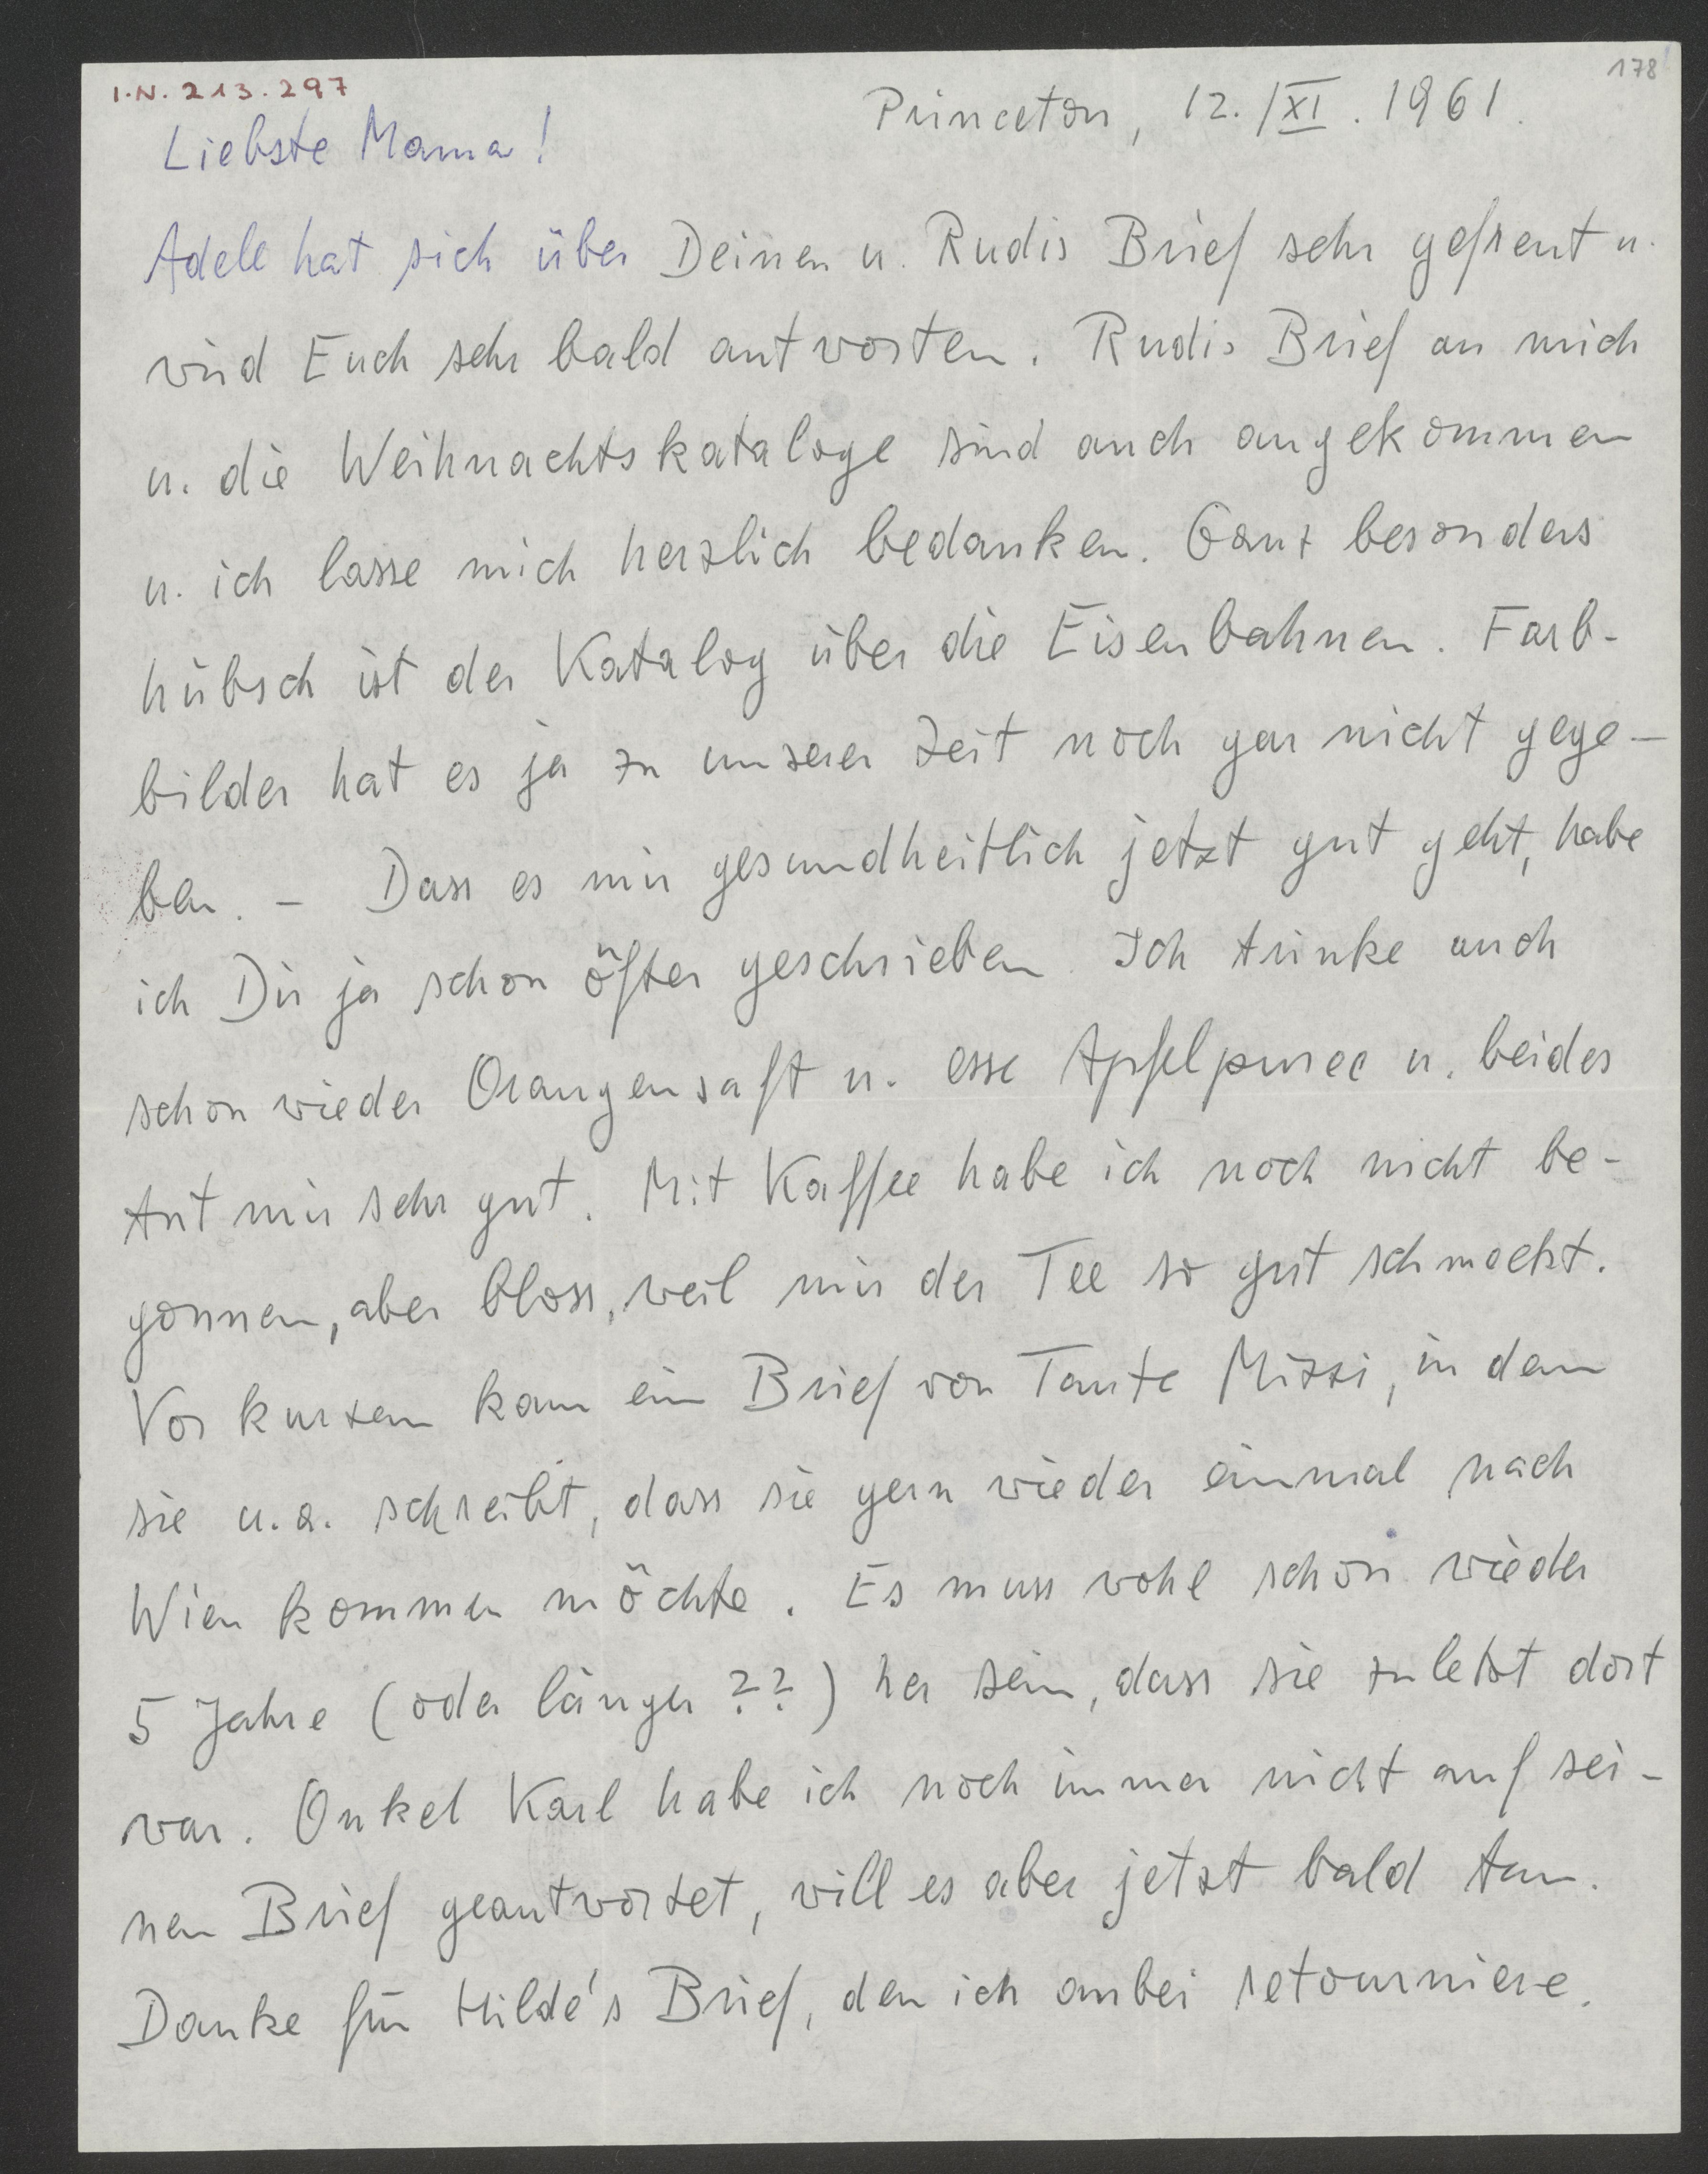 I.N. 213.297
178
Princeton, 12./XI. 1961.
Liebste Mama!
Adele hat sich über Deinen u. Rudis Brief sehr gefreut u.
wird Euch sehr bald antworten. Rudis Brief an mich
u. die Weihnachtskataloge sind auch angekommen
u. ich lasse mich herzlich bedanken. Ganz besonders
hübsch ist der Katalog über die Eisenbahnen. Farb-
bilder hat es ja zu unserer Zeit noch gar nicht gege-
ben. - Dass es mir gesundheitlich jetzt gut geht, habe
ich Dir ja schon öfter geschrieben. Ich trinke auch
schon wieder Orangensaft u. esse Apfelpuree u. beides
tut mir sehr gut. Mit Kaffee habe ich noch nicht be-
gonnen, aber bloss, weil mir der Tee so gut schmeckt.
Vor kurzem kam ein Brief von Tante Mizzi, in dem
sie u.a. schreibt, dass sie gern wieder einmal nach
Wien kommen möchte. Es muss wohl schon wieder
5 Jahre (oder länger ??) her sein, dass sie zuletzt dort
war. Onkel Karl habe ich noch immer nicht auf sei-
nen Brief geantwortet, will es aber jetzt bald tun.
Danke für Hilde's Brief, den ich anbei retourniere.